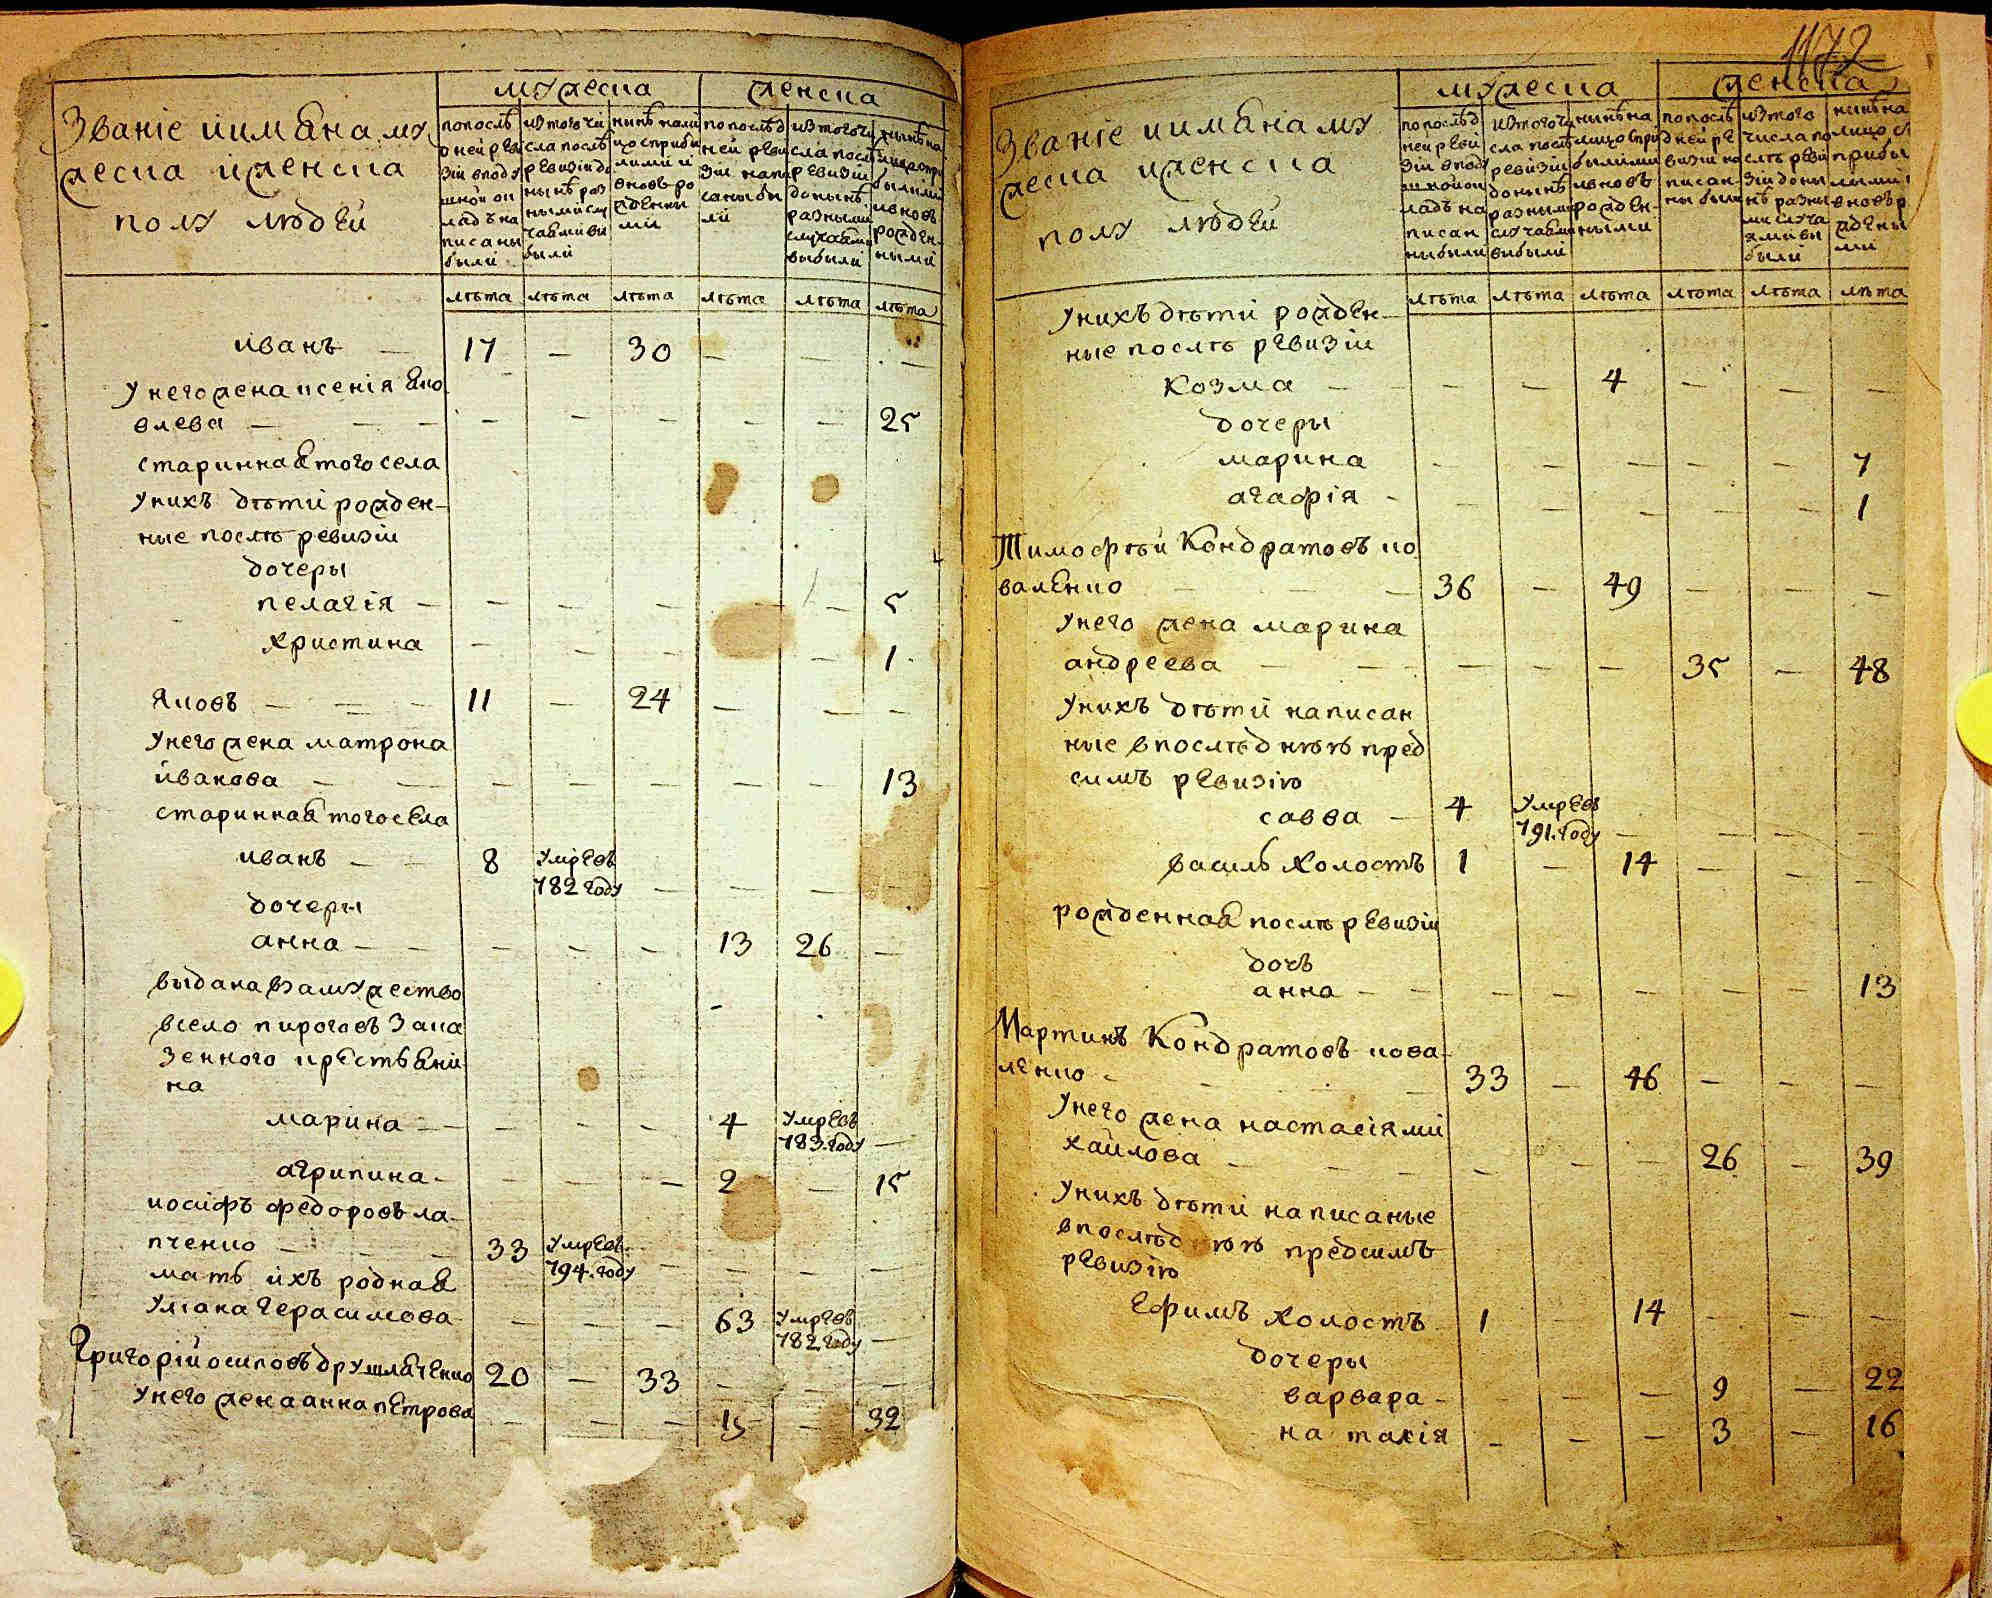 1172
Званіе и имѣна му
жеска и женска
полу людей
мужеска
женска
по послѣд
ней реви
зіи в поду
шной ок
ладъ на
писаны
были
из того чи
сла послѣ
ревизіи до
ныне раз
ными слу
чаями вы
были
ныне нали
цо с прибы
лыми и
вновь ро
жденны
ми
по послѣд
ней реви
зіи напи
саны бы
ли
из того чи
сла послѣ
ревизіи
до ныне
разными
случаями
выбыли
ныне на
лицо с при
былыми
и вновь
рожден
ными
лѣта лѣта лѣта лѣта лѣта лѣта
иванъ — 17 — 30 — — —
у него жена ксенія яко
влева — — — — — — — — 25
старинная того села
у нихъ дѣти рожден-
ные послѣ ревизіи
дочеры
пелагія — — — — — — 5
христина — — — — 1
яковъ — — — 11 — 24 — — —
у него жена матрона
иванова — — — — — — — 13
старинная того села
иванъ — — 8 умревъ
782 году — — — —
дочеры
анна — — — — — 13 26 —
выдана в замужество
в село пирогов за ка
зенного крестьяни
на
марина — — — — 4 умревъ
783 году —
агрипина — — — — 2 — 15
иосифъ федоровъ ла-
пченко — — — 33 умревъ
794 году — — — —
мать ихъ родная
улiана герасимова — — — 63 умревъ
782 году —
Григорій осиповъ друшляченко 20 — 33 — — —
у него жена анна петрова — — — 19 — 32
Званіе и имѣна му
жеска и женска
полу людей
мужеска
женска
по послѣд
ней реви
зіи в поду
шной ок
ладъ на
писан
ны были
из того чи
сла послѣ
ревизіи
до ныне
разными
случаями
выбыли
ныне на
лицо с при
былыми
и вновь
рожден-
ными
по послѣд
ней ре
визіи на
писан
ны были
из того
числа по
слѣ реви
зіи до ны
не разны
ми случа
ями вы
были
ныне на
лицо с
прибы
лыми и
вновь р
ждены
ми
лѣта лѣта лѣта лѣта лѣта лѣта
у нихъ дѣти рожден-
ные послѣ ревизіи
козма — — — — 4 — — —
дочеры
марина — — — — — 7
агафія — — — — — — 1
Тимофѣй Кондратовъ ко
валенко — — — 36 — 49 — — —
у него жена марина
андреева — — — — — — 35 — 48
у нихъ дѣти написан
ные в послѣднюю пред
симъ ревизію
савва — 4 умревъ
791 году — — — —
василь холостъ 1 — 14 — — —
рожденная послѣ ревизіи
дочь
анна — — — — — — — 13
Мартинъ Кондратовъ кова-
ленко — — — 33 — 46 — — —
у него жена настасія ми
хайлова — — — — — — 26 — 39
у нихъ дѣти написаные
в послѣднюю предсимъ
ревизію
ефимъ холостъ 1 — 14 — — —
дочеры
варвара — — — — 9 — 22
наталія — — — 3 — 16